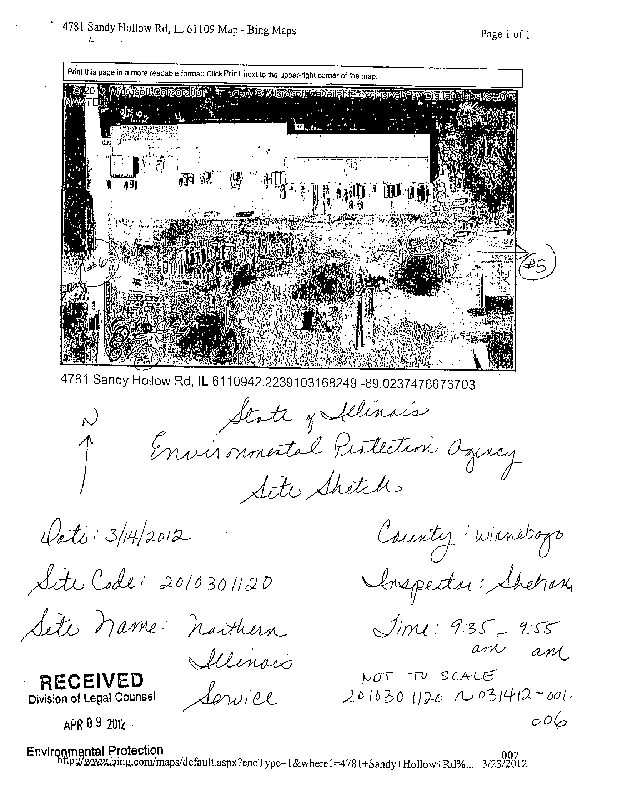 4781 Sandy Hollow Rd, IL 61109 Map - Bing Maps
Page 1 of 1
Print this page in a more readable format: Click Print next to the upper-right corner of the map.
#6
#5
4781 Sandy Hollow Rd, IL 6110942.2239103168249 -89.0237476673703
N
State of Illinois
Environmental Protection Agency
Site Sketch
Date: 3/14/2012
County: Winnebago
Site Code: 2010301120
Inspector: Shehan
Site Name: Northern
Illinois
Service
Time: 9:35 - 9:55
am am
NOT TO SCALE
2010301120 N 031412-001-
006
RECEIVED
Division of Legal Counsel
APR 09 2012
Environmental Protection
007
http://www.bing.com/maps/default.aspx?encType=1&where1=4781+Sandy+Hollow+Rd%... 3/23/2012